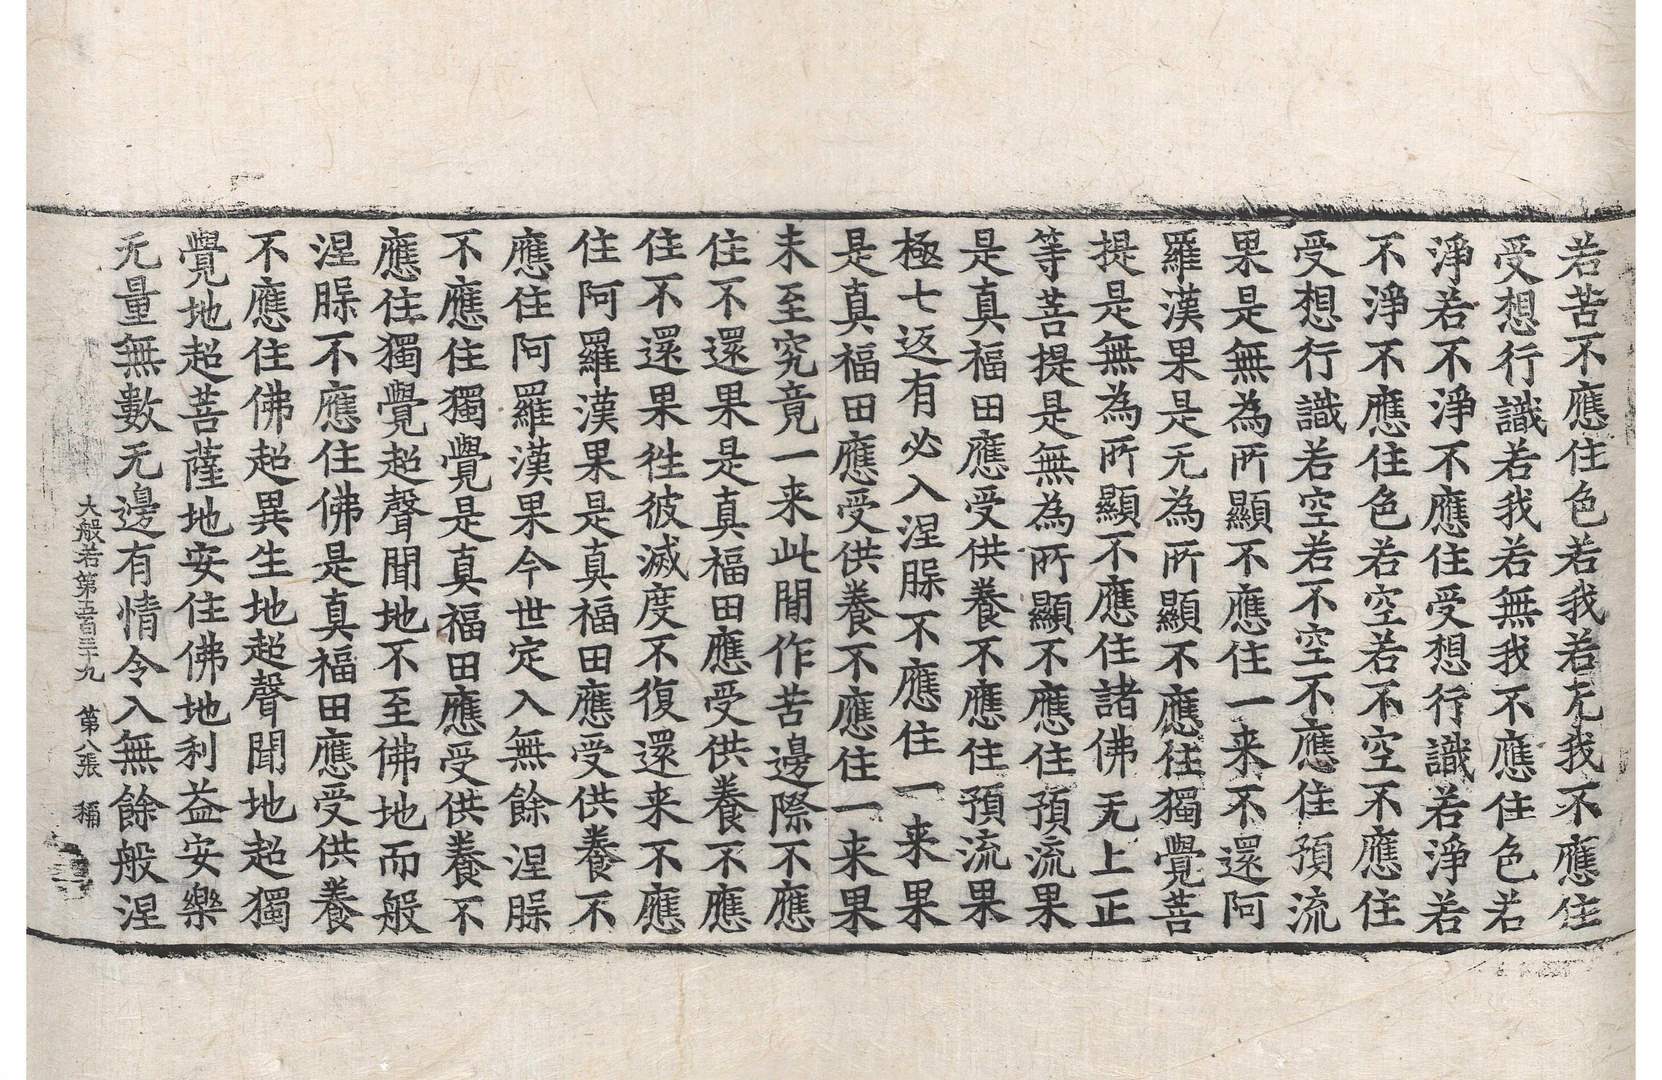 若苦不應住色若我若无我不應住
受想行識若我若無我不應住色若
淨若不淨不應住受想行識若淨若
不淨不應住色若空若不空不應住
受想行識若空若不空不應住預流
果是無為所顯不應住一来不還阿
羅漢果是无為所顯不應住獨覺菩
提是無為所顯不應住諸佛无上正
等菩提是無為所顯不應住預流果
是真福田應受供養不應住預流果
極七返有必入涅槃不應住一来果
是真福田應受供養不應住一来果
未至究竟一来此間作苦邊際不應
住不還果是真福田應受供養不應
住不還果徃彼滅度不復還来不應
住阿羅漢果是真福田應受供養不
應住阿羅漢果今世定入無餘涅槃
不應住獨覺是真福田應受供養不
應住獨覺超聲聞地不至佛地而般
涅槃不應住佛是真福田應受供養
不應住佛超異生地超聲聞地超獨
覺地超菩薩地安住佛地利益安樂
无量無數无邊有情令入無餘般涅
大般若第五百三十九 第八張 稱